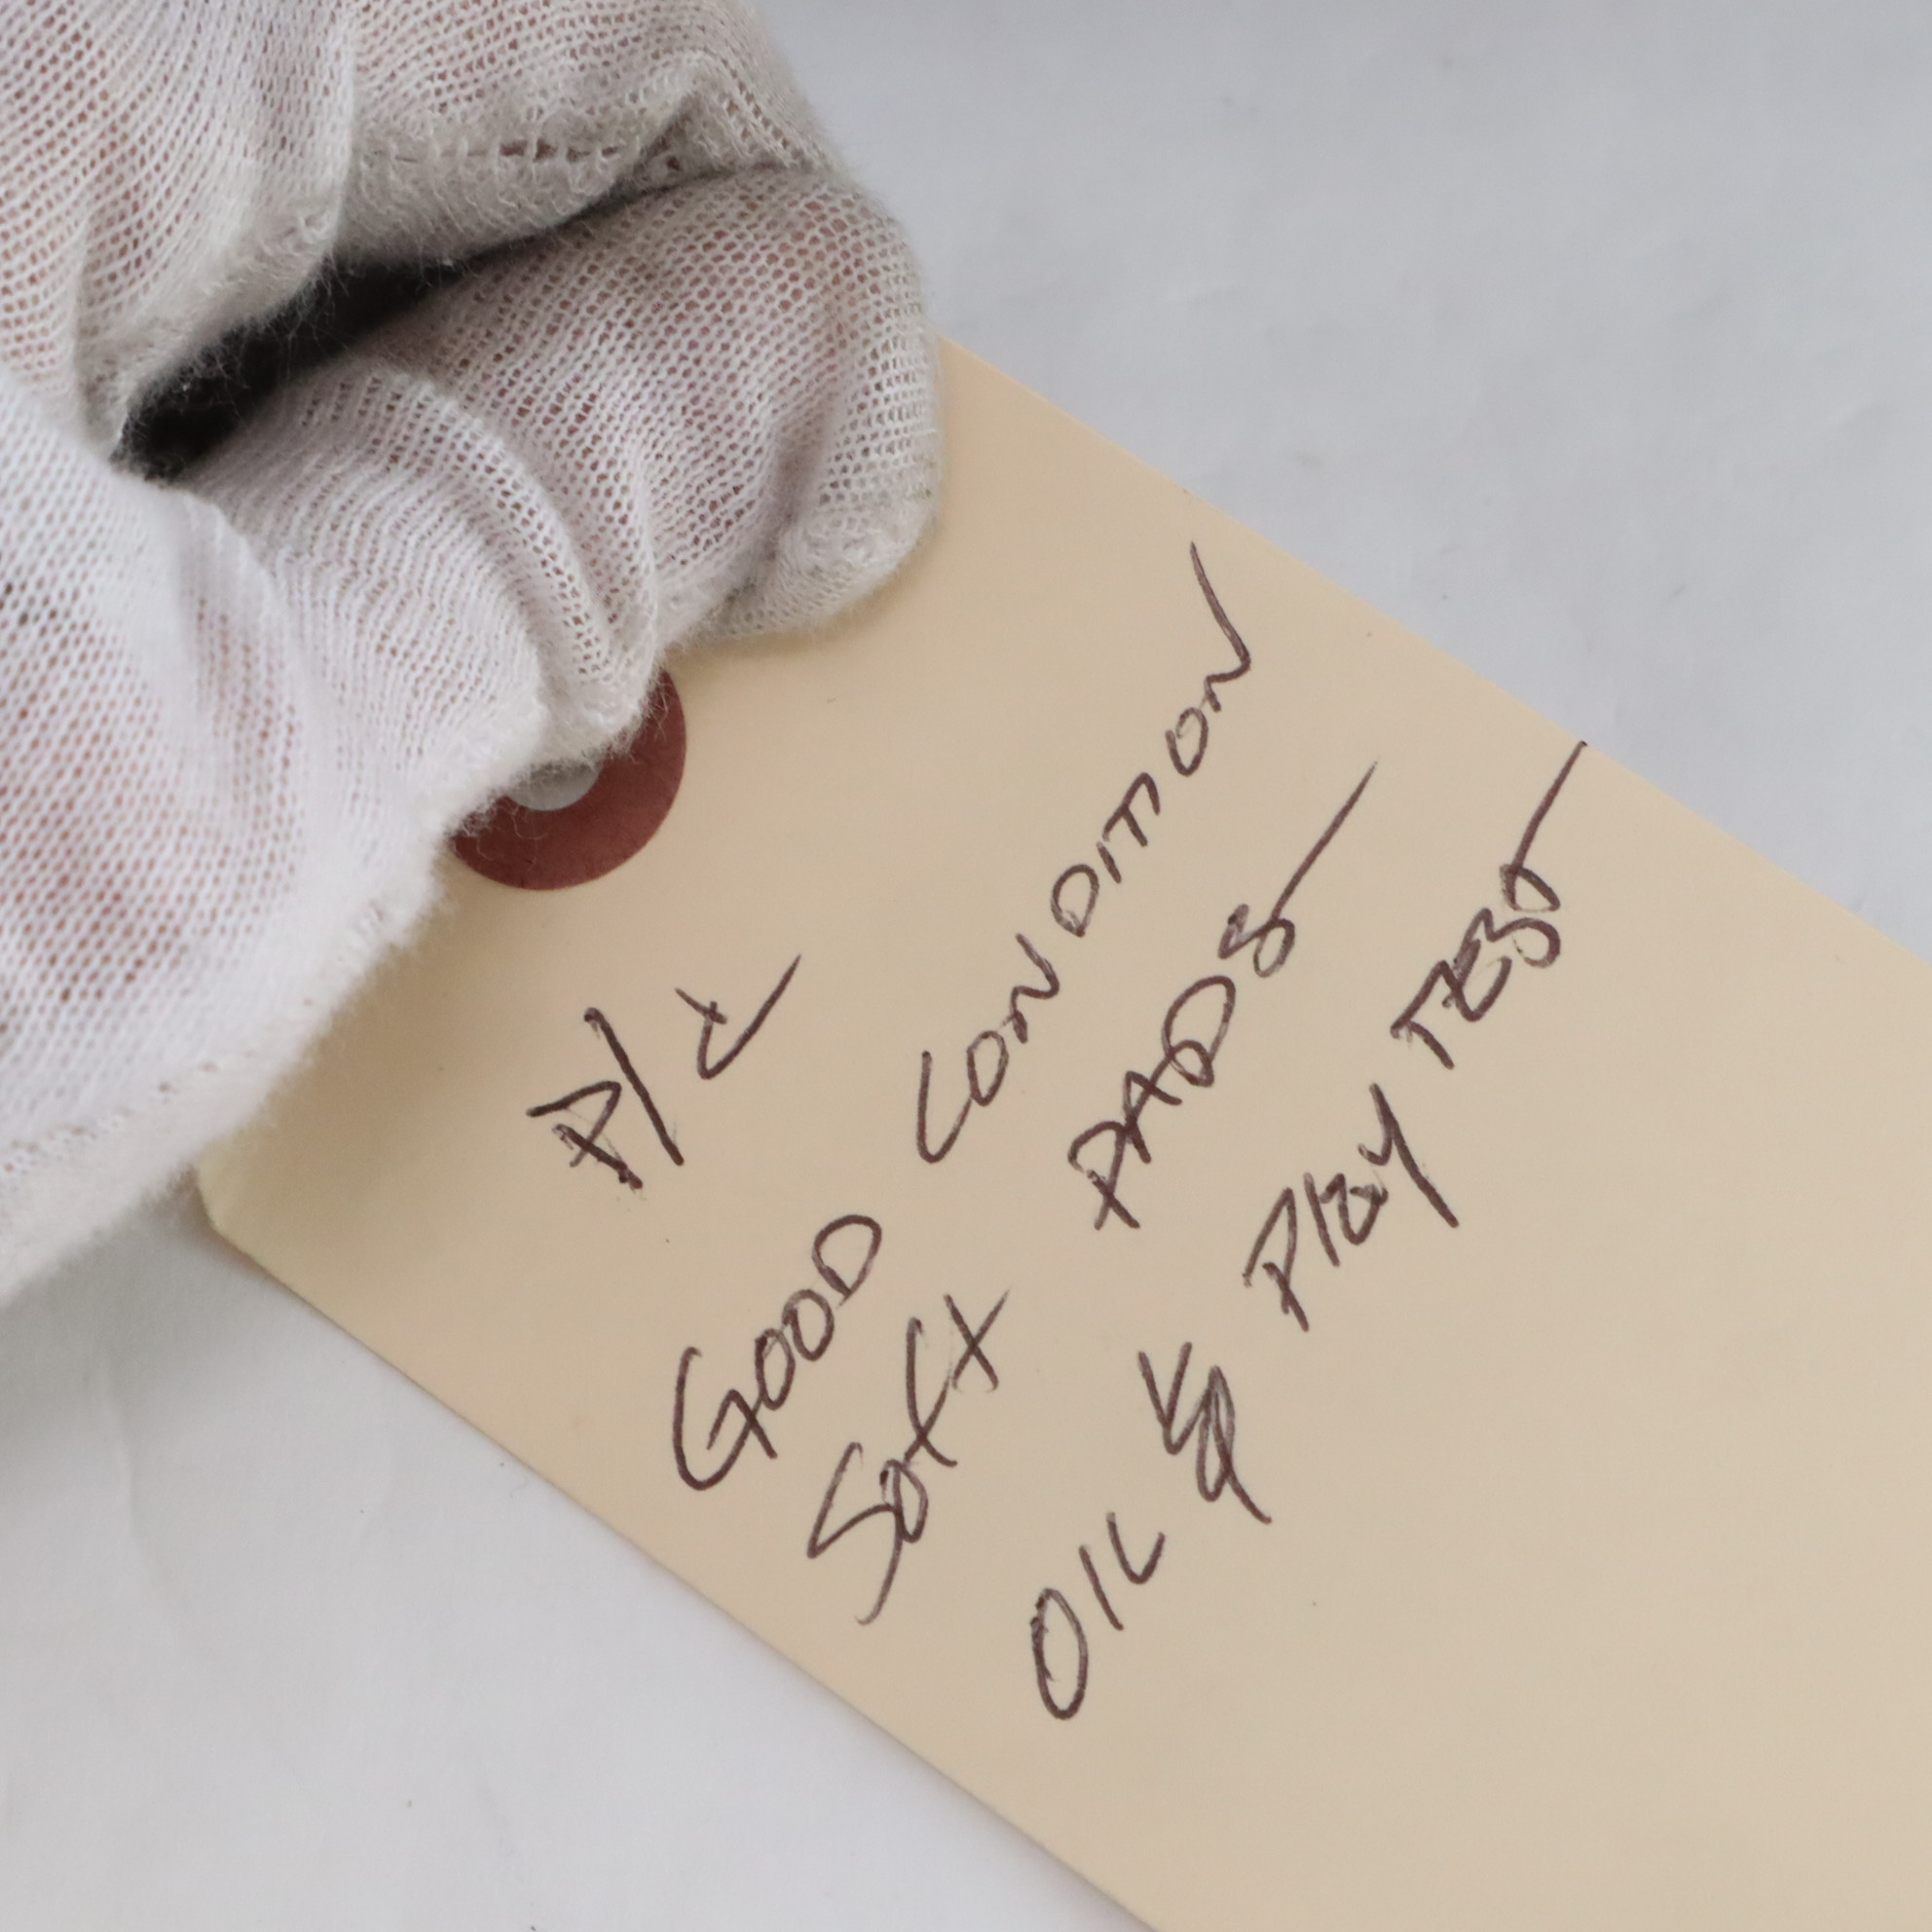 P/C
GOOD CONDITION
SOFT PADS
OIL & PlAY TEST